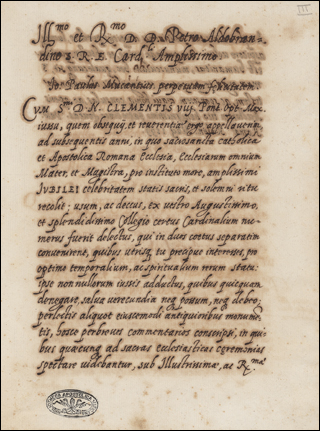 Ill.mo et R.mo D. D. Petro Aldobran=
dino S. R. E. Card.li Amplissimo.
Io: Paulus Mucantius, perpetuam felicitatem.
Cum S.mi D. N. CLEMENTIS viij. Pont. Opt. Max.
iussu, quem obsequij, et reuerentiae ergo appello, uenturi
ad subsequentis anni, in quo sacrosancta catholica
et Apostolica Romana Ecclesia, Ecclesiarum omnium
Mater, et Magistra, pro instituto more, amplissimi
IVBILEI celebritatem statis sacris, et solemni ritu
recolit: usum, ac decus, ex uestro Augustissimo,
et splendidissimo Collegio certus Cardinalium nu=
merus fuerit delectus, qui in duos coetus separatim
conuenirent, quibus utrisq. tu precipue interesses, pro
optimo temporalium, ac spiritualium rerum statu:
ipse nonnullorum iussis adductus, quibus quicquam
denegare, salua uerecundia nec possum, neq. debeo;
perlectis aliquot eiuscemodi antiquioribus monume=
tis, hosce perbreues commentarios conscripsi, in qui=
bus quaecunq. ad sacras ecclesiasticas ceremonias
spectare uidebantur, sub Illustrissimae, ac R.mae